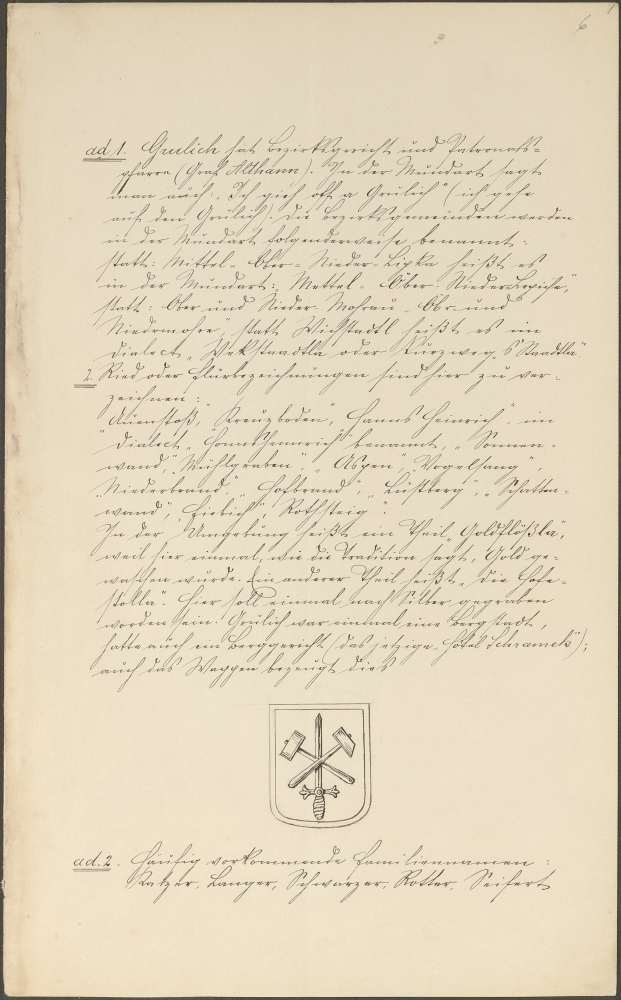 6
ad 1. Grulich hat Bezirksgericht und Patronats-
pfarre (Graf Althann). In der Mundart sagt
man auch „Ich gieh oft a Grilich" (ich gehe
auf den Grulich). Die Bezirksgemeinden werden
in der Mundart folgenderweise benannt:
statt: Mittel- Ober- Nieder-Lipka heißt es
in der Mundart: „Mettel- Ober- Nieder
statt: Ober und Nieder Mohrau - Obr- und
Niedermohre, statt Wichstadtl heißt es im
Dialect „Wekstaadtla oder kurzweg „'S Staadtla"
2. Ried oder Flurbezeichnungen sind hier zu ver-
zeichnen:
Kreuzboden", „Hanns Heinrich", im
Dialect benannt, „Sonnen-
wand", „Mühlgraben", „Aspen", „Vogelsang",
„Niederbrand", „Hofbrand", „Lustberg", „Schatten-
wand", „Fiebich", „Rothsteig".
In der Umgebung heißt ein Theil „Goldflößla",
weil hier einmal, wie die Tradition sagt, Gold ge-
waschen wurde. Ein anderer Theil heißt „die Hofe-
stolla". Hier soll einmal nach Silber gegraben
worden sein. Grulich war einmal eine Bergstadt,
hatte auch ein Berggericht (das jetzige „Hôtel Schramek");
auch das Wappen bezeugt dies
ad. 2. Häufig vorkommende Familiennamen:
Katzer, Langer, Schwarzer, Rotter, Seifert